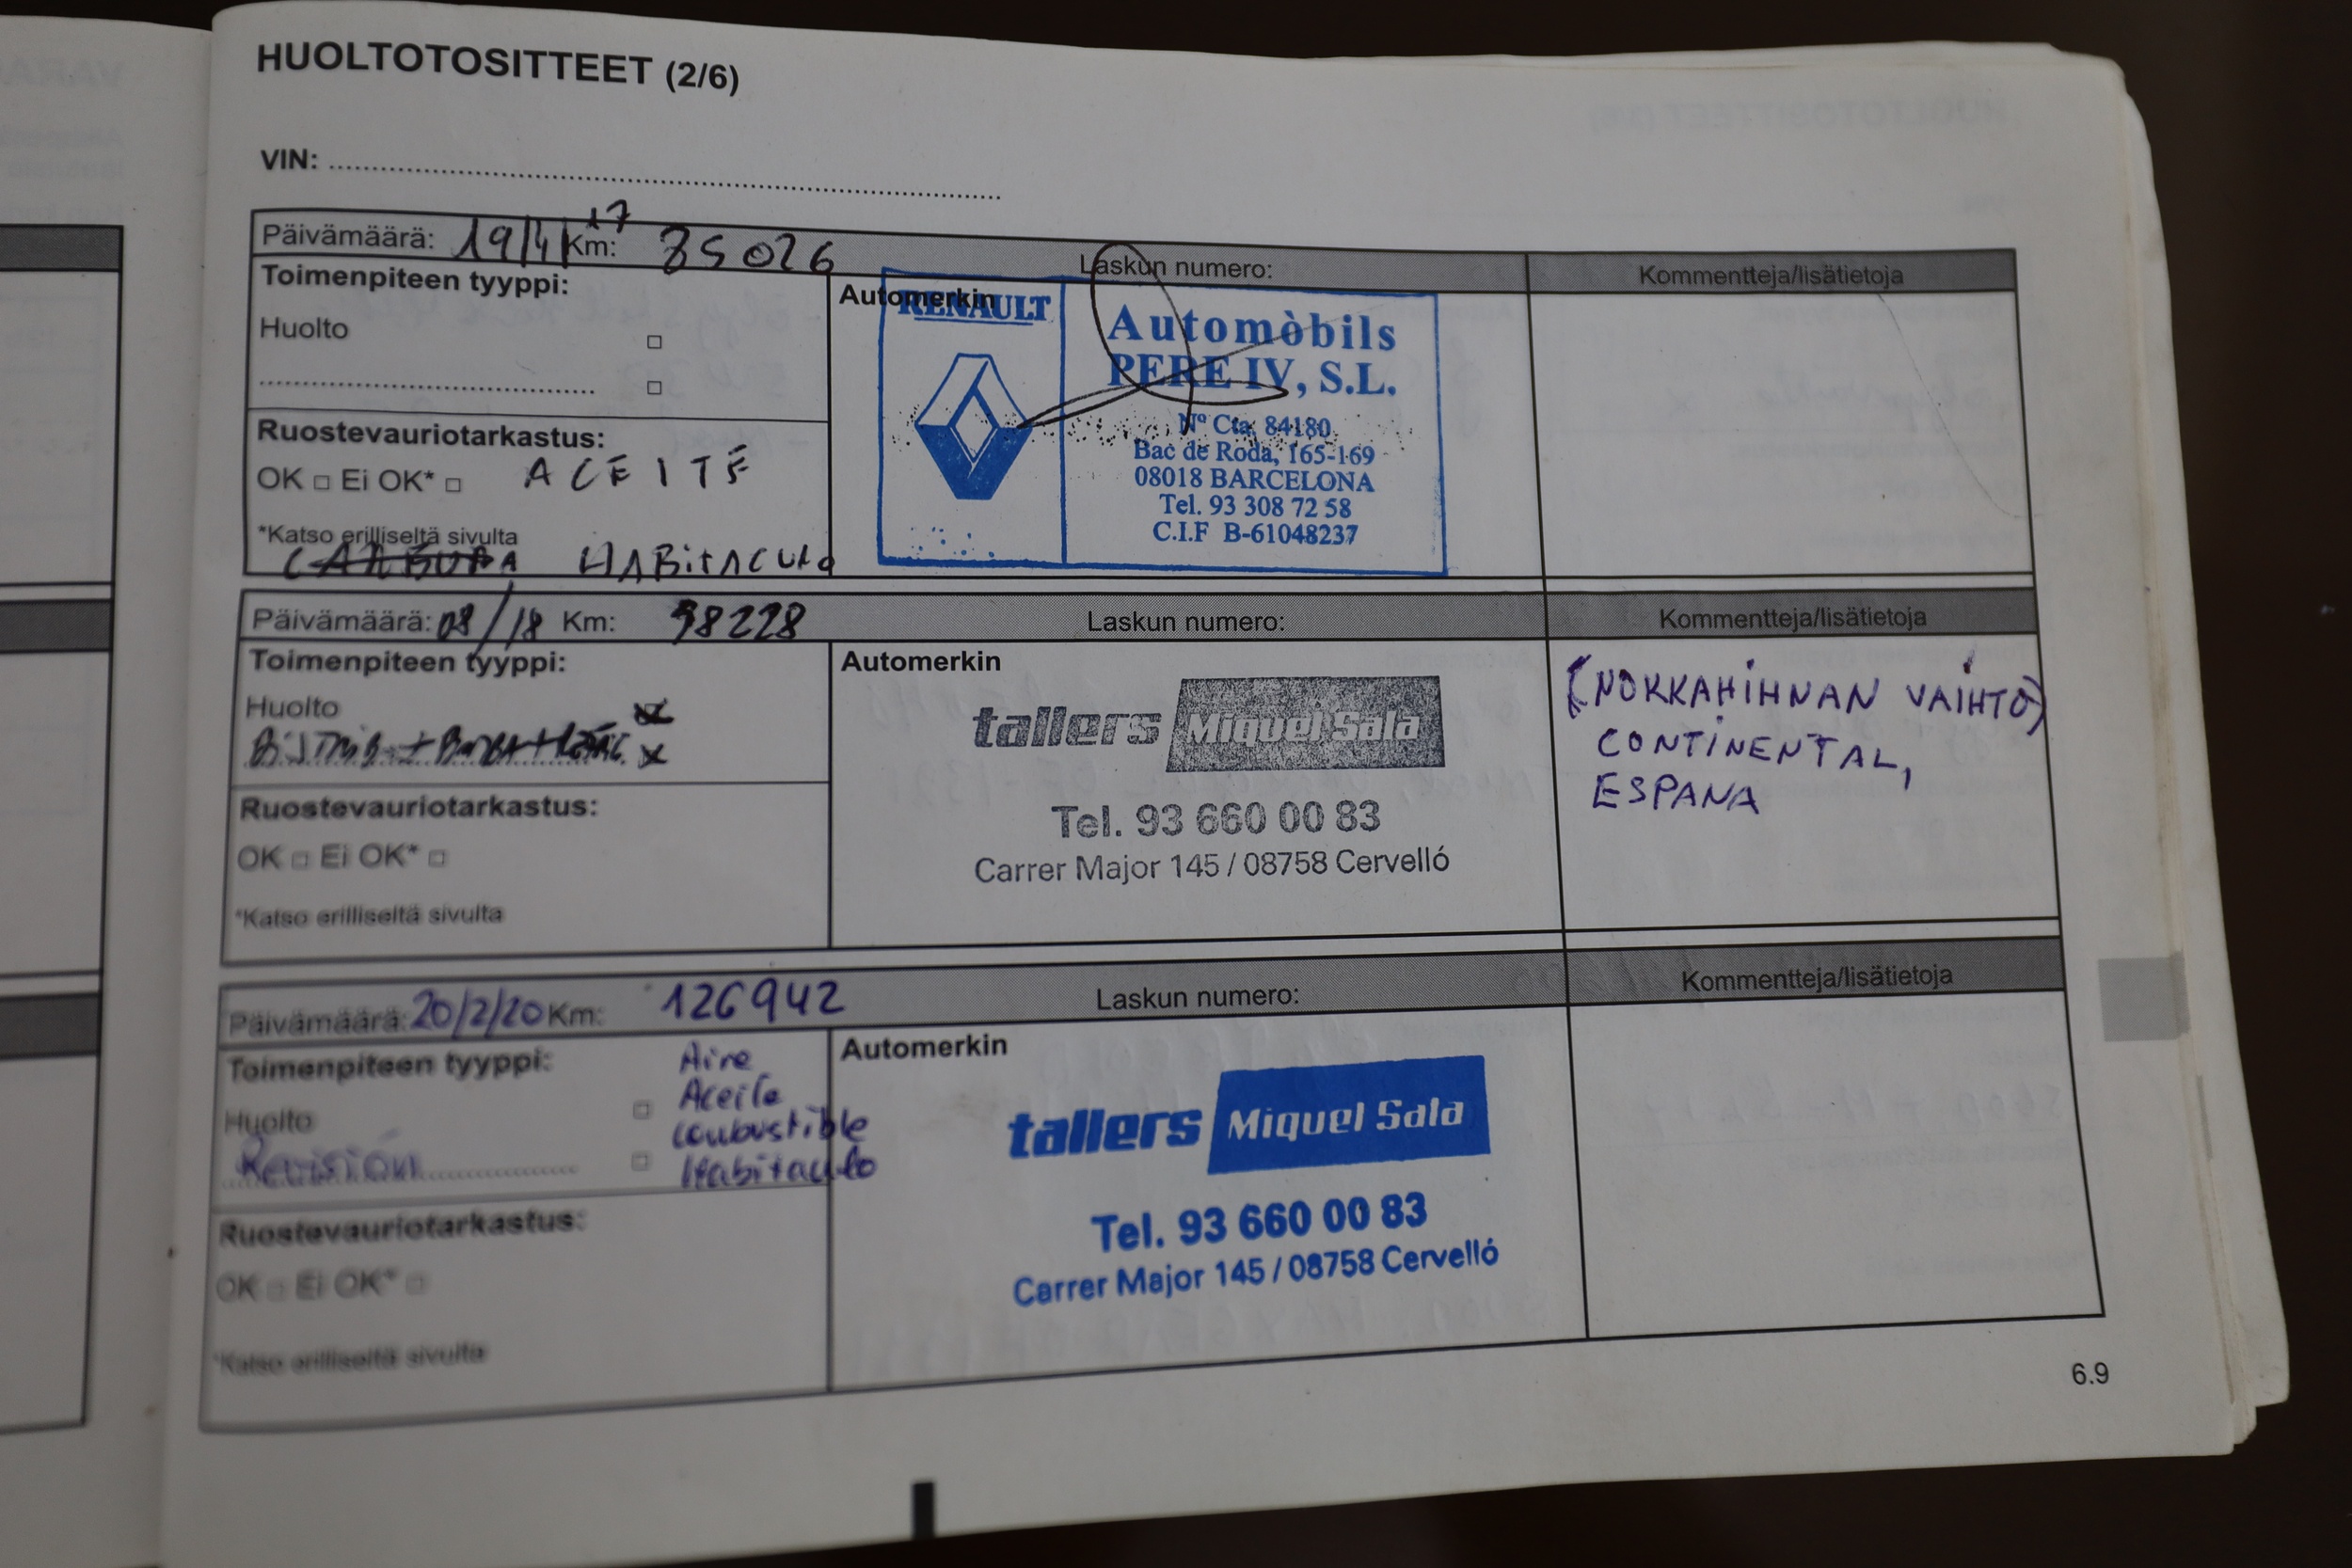 HUOLTOTOSITTEET (2/6)
VIN:
Päivämäärä: 19/4/17 Km: 85026
Laskun numero:
Kommentteja/lisätietoja
Toimenpiteen tyyppi:
Huolto
Ruostevauriotarkastus:
OK Ei OK* ACEITE
*Katso erilliseltä sivulta
HABITACULO
Automerkin
RENAULT
Automòbils
PERE IV, S.L.
Nº Cta. 84180
Bac de Roda, 165-169
08018 BARCELONA
Tel. 93 308 72 58
C.I.F B-61048237
Päivämäärä: 08/18 Km: 98228
Laskun numero:
Kommentteja/lisätietoja
Toimenpiteen tyyppi:
Huolto
Ruostevauriotarkastus:
OK Ei OK*
*Katso erilliseltä sivulta
Automerkin
tallers Miquel Sala
Tel. 93 660 00 83
Carrer Major 145 / 08758 Cervelló
(NOKKAHIHNAN VAIHTO)
CONTINENTAL,
ESPANA
Päivämäärä: 20/2/20 Km: 126942
Laskun numero:
Kommentteja/lisätietoja
Toimenpiteen tyyppi:
Huolto
Revisión
Aire
Aceite
combustible
Habitaculo
Ruostevauriotarkastus:
OK Ei OK*
*Katso erilliseltä sivulta
Automerkin
tallers Miquel Sala
Tel. 93 660 00 83
Carrer Major 145 / 08758 Cervelló
6.9